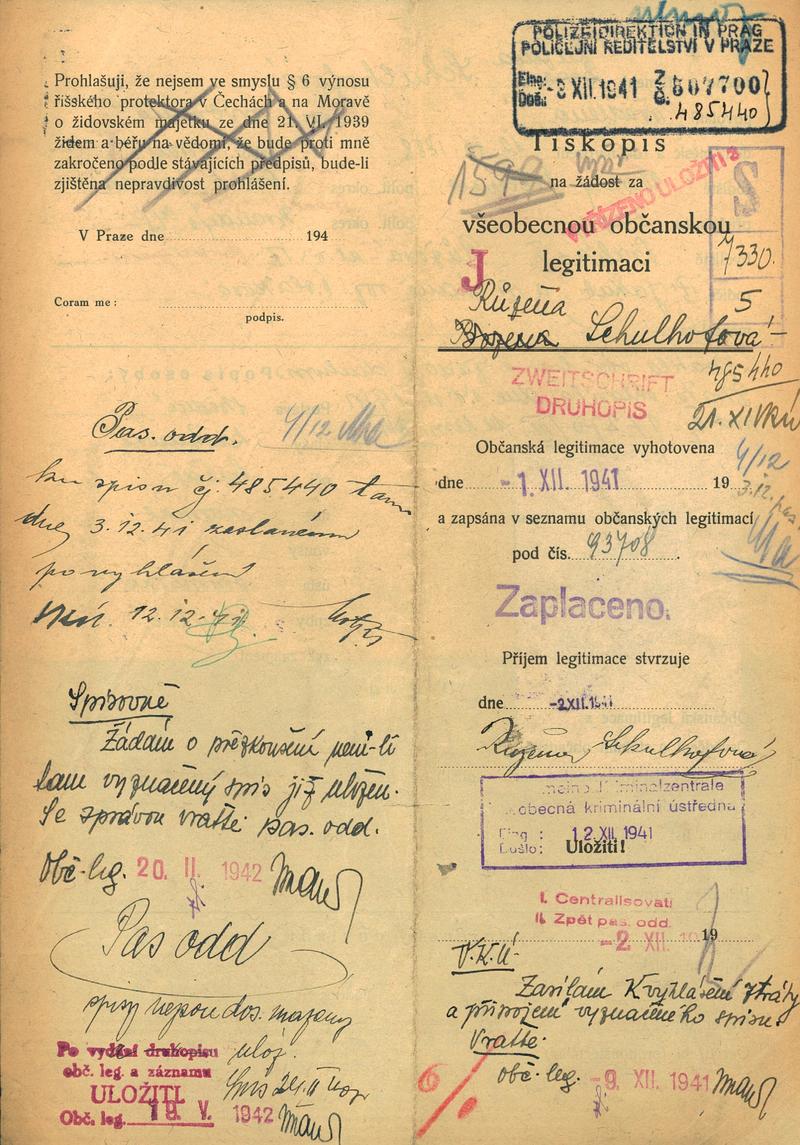 Prohlašuji, že nejsem ve smyslu § 6 výnosu
říšského protektora v Čechách a na Moravě
o židovském majetku ze dne 21. VI. 1939
židem a béřu na vědomí, že bude proti mně
zakročeno podle stávajících předpisů, bude-li
zjištěna nepravdivost prohlášení.
V Praze dne 194
Coram me:
podpis.
Pas. odd. 4/12
ku spisu čj. 485440 tam
dne 3.12.41 zaslanému
po vyhlášení
12.12.41
Spisovně
Žádám o přezkoušení není-li
tam vyznačený spis již uložen.
Se zprávou vraťte pas. odd.
Obč. leg. 20. II. 1942
Pas odd
spisy nejsou dos.
Po vydání druhopisu
obč. leg. a záznamu
ULOŽITI
Obč. leg. 18. V. 1942
POLIZEIDIREKTION IN PRAG
POLICEJNÍ ŘEDITELSTVÍ V PRAZE
Eing.:
Došlo: -3 XII. 1941 Z 507700
Č. 485440
Tiskopis
1592 na žádost za
VYŘÍZENO ULOŽITI
všeobecnou občanskou
S
7330.
J legitimaci
5
Růžena
Božena Schulhofová
485440
ZWEITSCHRIFT
DRUHOPIS
21. XI
Občanská legitimace vyhotovena
4/12
dne -1. XII. 1941 19
3.12.
a zapsána v seznamu občanských legitimací
pod čís. 93708
Zaplaceno.
Příjem legitimace stvrzuje
dne -2.XII.1941
Růžena Schulhofová
Kriminalzentrale
obecná kriminální ústředna
Eing.: 12. XII. 1941
Došlo: Uložiti!
I. Centralisovati
II. Zpět pas. odd.
-2. XII. 19
V.K.Ú.
Zasílám k vyhlášení ztráty
a připojení vyznačeného spisu.
Vraťte.
obč. leg. -9. XII. 1941
6/